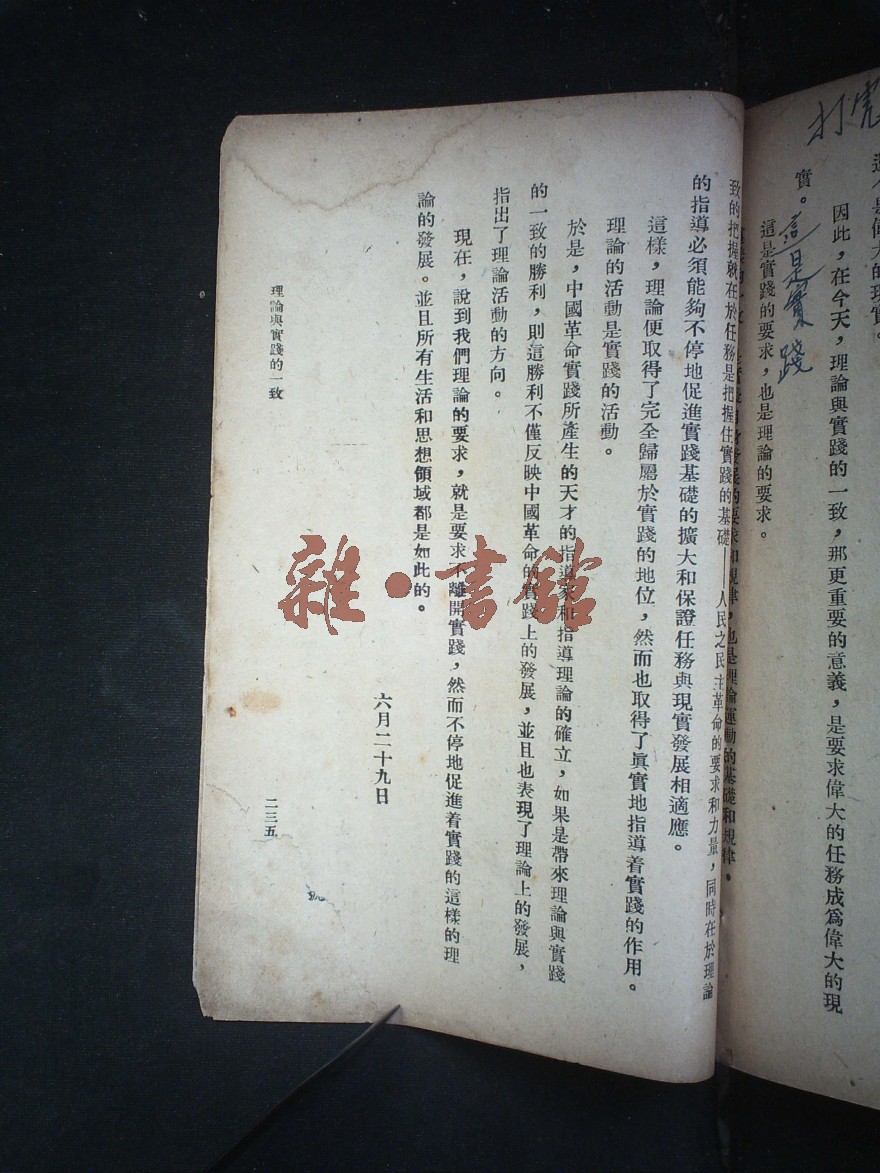 打虎
是偉大的現實。
因此，在今天，理論與實踐的一致，那更重要的意義，是要求偉大的任務成爲偉大的現
實。
這是實踐
這是實踐的要求，也是理論的要求。
發展的要求和規律，也是理論運動的基礎和規律。
致的把握就在於任務是把握住實踐的基礎——人民之民主革命的要求和力量，同時在於理論
的指導必須能夠不停地促進實踐基礎的擴大和保證任務與現實發展相適應。
這樣，理論便取得了完全歸屬於實踐的地位，然而也取得了眞實地指導着實踐的作用。
理論的活動是實踐的活動。
於是，中國革命實踐所產生的天才的指導家和指導理論的確立，如果是帶來理論與實踐
的一致的勝利，則這勝利不僅反映中國革命的實踐上的發展，並且也表現了理論上的發展，
指出了理論活動的方向。
現在，說到我們理論的要求，就是要求不離開實踐，然而不停地促進着實踐的這樣的理
論的發展。並且所有生活和思想領域都是如此的。
六月二十九日
理論與實踐的一致
二三五
雜·書館